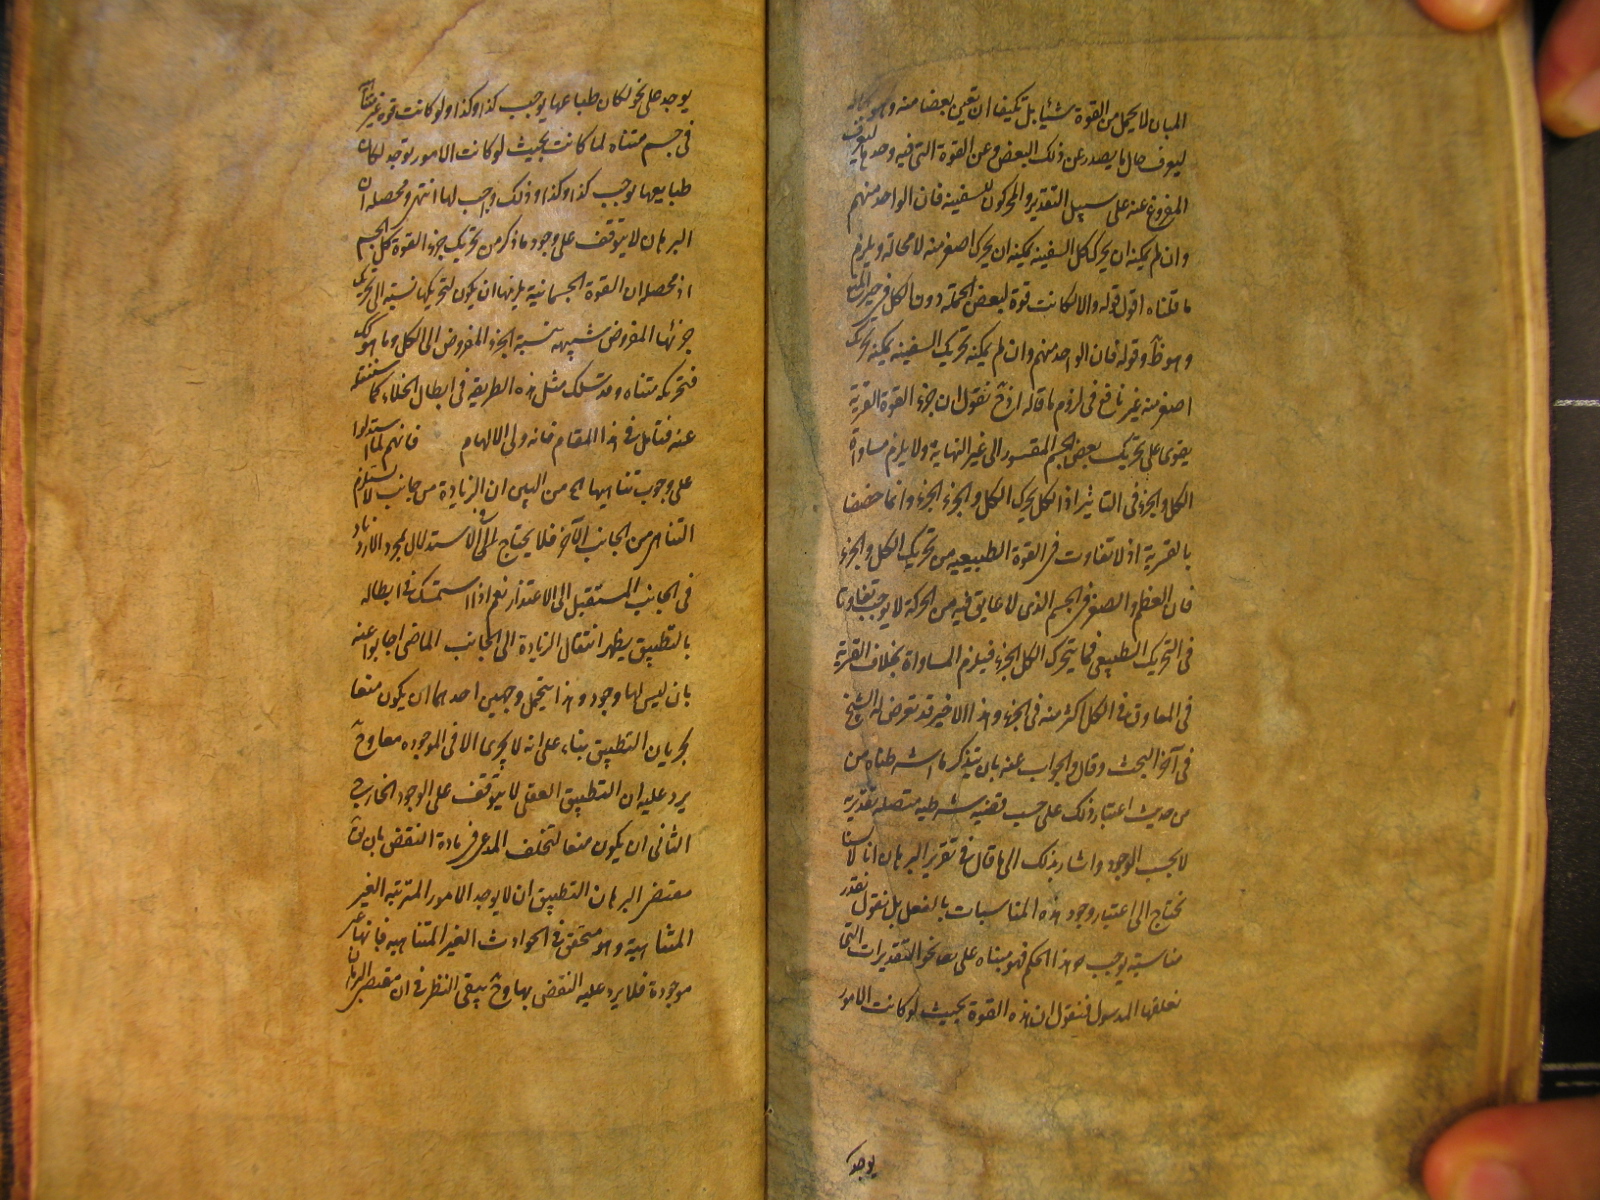 المباين لا يحمل من القوة شيئا بل تكيفنا ان نعين بعضا منه وهو بحاله
ليعرف حال ما يصدر عن ذلك البعض وعن القوة التي فيه وحدها
المفروغ عنه على سبيل التقدير والمحركون للسفينة فان الواحد منهم
وان لم يمكنه ان يحرك كل السفينه يمكنه ان يحرك اصغر منه لا محالة ويلزم
ما قلناه اقول قوله والا لكانت قوة لبعض الجملة دون الكل في حيز المنع
وهو ظ وقوله فان الواحد منهم وان لم يمكنه تحريك السفينه يمكنه تحريك
اصغر منه غير نافع في لزوم ما قاله اذ ح نقول ان جزء القوة القسرية
يقوى على تحريك بعض الجسم المقسور الى غير النهاية ولا يلزم مساواة
الكل والجزء في التاثير اذ الكل يحرك الكل والجزء الجزء وانما خصصنا
بالقسرية اذ لا تفاوت في القوة الطبيعيه من تحريك الكل والجزء
فان العظم والصغر في الجسم الذي لا عايق فيه من الحركة لا يوجب تفاوتا
في التحريك الطبيعي فما يتحرك الكل الجزء فيلزم المساواة بخلاف القسرية
في المعاوق في الكل اكثر منه في الجزء وهذا الاخير قد تعرض له الشيخ
في آخر البحث وقال والجواب عنه بان يتذكر ما شرطناه من
من حديث اعتبار ذلك على حسب قضيه شرطيه متصله تقديرية
لا بحسب الوجود واشار بذلك الى ما قال في تقرير البرهان انا لسنا
نحتاج الى اعتبار وجود هذه المناسبات بالفعل بل نقول نقدر
مناسبة يوجب هذا الحكم فهو مبناه على نحو التقديرات التي
فنقول ان هذه القوة بحيث لو كانت الامور
يوجد
يوجد على نحو لكان طباعها يوجب كذا وكذا ولو كانت قوة غير متناه
في جسم متناه لما كانت بحيث لو كانت الامور توجد لكان
طبايعها توجب كذا وكذا وذلك واجب لها انتهى ومحصله ان
البرهان لا يتوقف على وجود ما ذكر من تحريك جزء القوة لكل الجسم
اذ محصله ان القوة الجسمانية يلزمها ان يكون لتحريكها نسبة الى تحريك
جزئها المفروض شبيهة بنسبة الجزء المفروض الى الكل وما هو كك
فتحريكه متناه وقد تسلك مثل هذه الطريقه في ابطال الخلاء كما سننقله
عنه فتامل في هذا المقام فانه ولي الالهام فانهم لما استدلوا
على وجوب تناهيها الخ من البين ان الزيادة من جانب لا يستلزم
التناهي من الجانب الآخر فلا يحتاج في الاستدلال بمجرد الازدياد
في الجانب المستقبل الى الاعتذار نعم اذا استمسك في ابطاله
بالتطبيق يظهر انتقال الزيادة الى الجانب الماضي اجابوا عنه
بان ليس لها وجود وهذا يتحمل وجهين احدهما ان يكون منعا
بجريان التطبيق بناء على انه لا يجري الا في الموجوده معا وح
يرد عليه ان التطبيق العقلي لا يتوقف على الوجود الخارجي
الثاني ان يكون منعا لتخلف المدعى في مادة النقض بان يق
مقتضى البرهان التطبيق ان لا يوجد الامور المترتبه الغير
المتناهية وهو متحقق في الحوادث الغير المتناهيه فانها غير
موجودة فلا يرد عليه النقض بها وح يبقى النظر في ان مقتضى البرهان